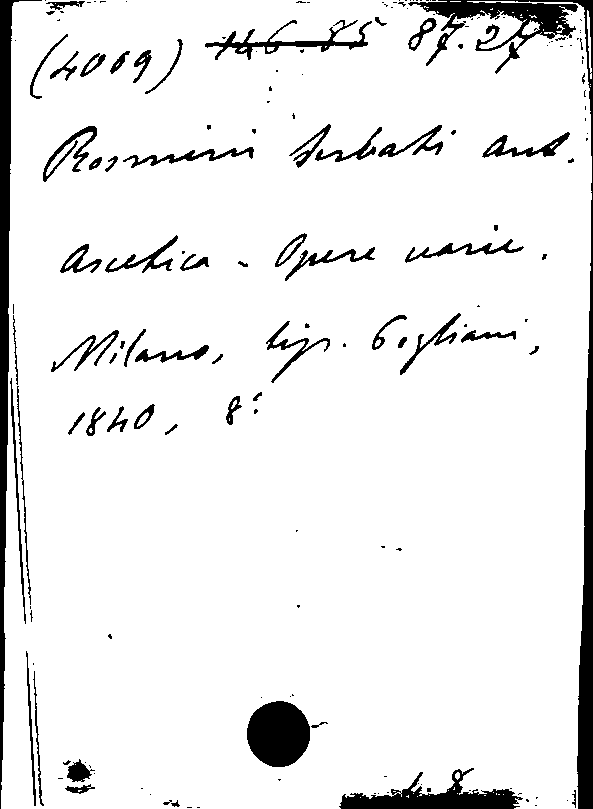 (4009) 146.85 87.27
Rosmini Serbati Ant.
Ascetica - Opere varie.
Milano, tip. Pogliani,
1840, 8º
L. 8